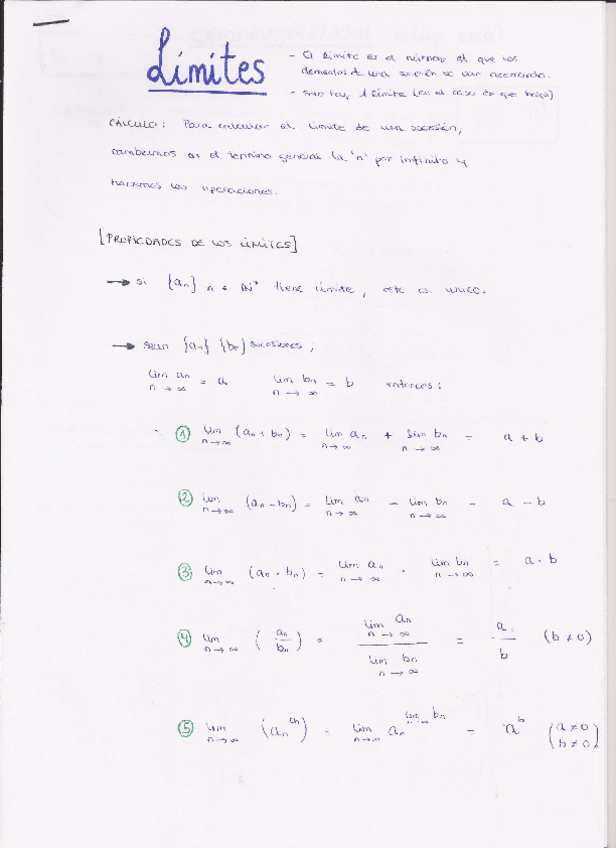 Límites
- El límite es el número al que los
elementos de una sucesión se van acercando.
- Solo hay 1 límite (en el caso de que haya)
CÁLCULO: Para calcular el límite de una sucesión,
cambiamos en el término general la 'n' por infinito y
hacemos las operaciones.
[PROPIEDADES DE LOS LÍMITES]
→ si {an} n ∈ N* tiene límite, este es único.
→ sean {an} {bn} sucesiones,
lim an = a lim bn = b entonces:
n→∞ n→∞
① lim (an + bn) = lim an + lim bn = a + b
n→∞ n→∞ n→∞
② lim (an - bn) = lim an - lim bn = a - b
n→∞ n→∞ n→∞
③ lim (an · bn) = lim an · lim bn = a · b
n→∞ n→∞ n→∞
④ lim (an/bn) = lim an / lim bn = a/b (b ≠ 0)
n→∞ n→∞ n→∞
⑤ lim (an^) = lim an^lim bn = a^b (a ≠ 0
n→∞ n→∞ b ≠ 0)